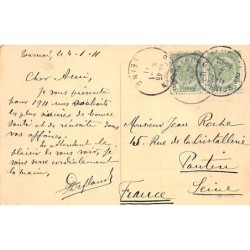 Tournai, le 4-1-11
Cher Ami,
Je vous présente
pour 1911 mes souhaits
les plus sincères de bonne
santé et de réussite dans
vos affaires.
attendant le
plaisir de vous voir, je
vous serre cordialement
la main,
Monsieur Jean Roche
45 Rue de la Cristallerie
Pantin
Seine
France